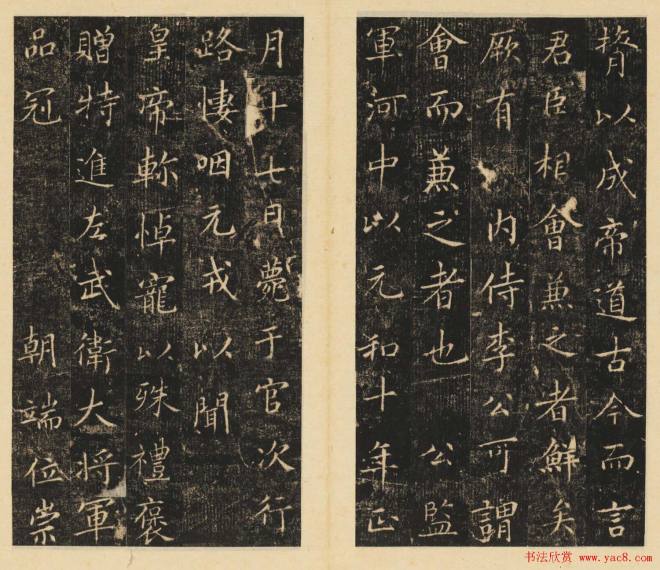 膂以成帝道古今而言
君臣相會兼之者鮮矣
厥有 內侍李公可謂
會而兼之者也 公監
軍河中以元和十年正
月廿七日薨于官次行
路悽咽元戎以聞
皇帝軫悼寵以殊禮褒
贈特進左武衛大将軍
品冠 朝端位崇
书法欣赏 www.yac8.com